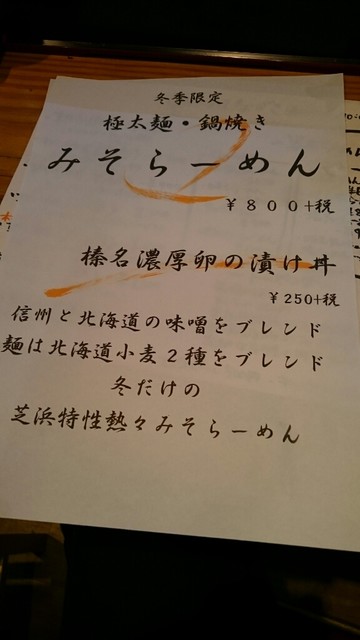 冬季限定
極太麺・鍋焼き
みそらーめん
￥８００＋税
榛名濃厚卵の漬け丼
￥250+税
信州と北海道の味噌をブレンド
麺は北海道小麦２種をブレンド
冬だけの
芝浜特性熱々みそらーめん